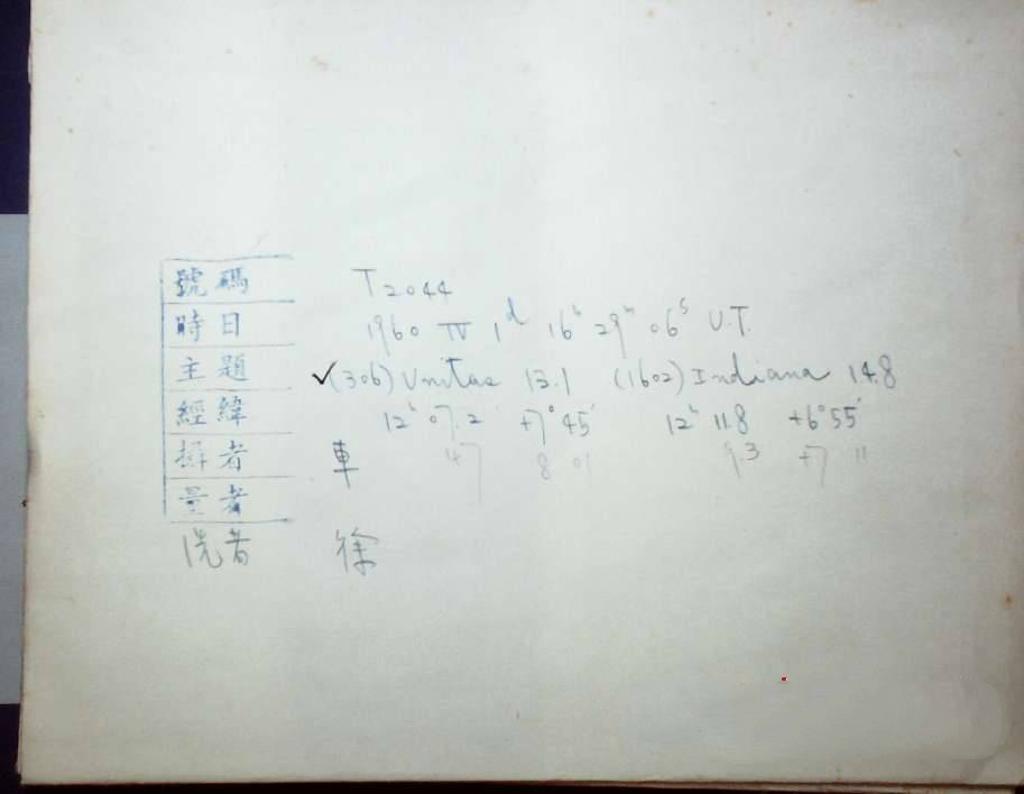 號碼 T2044
時日 1960 IV 1ᵈ 16ʰ 29ᵐ 06ˢ U.T.
主題 ✓(306) Unitas 13.1 (1602) Indiana 14.8
經緯 12ʰ 07.2 +7°45′ 12ʰ 11.8 +6°55′
攝者 車 47 8 01 9.3 +7 11
量者
洗者 徐